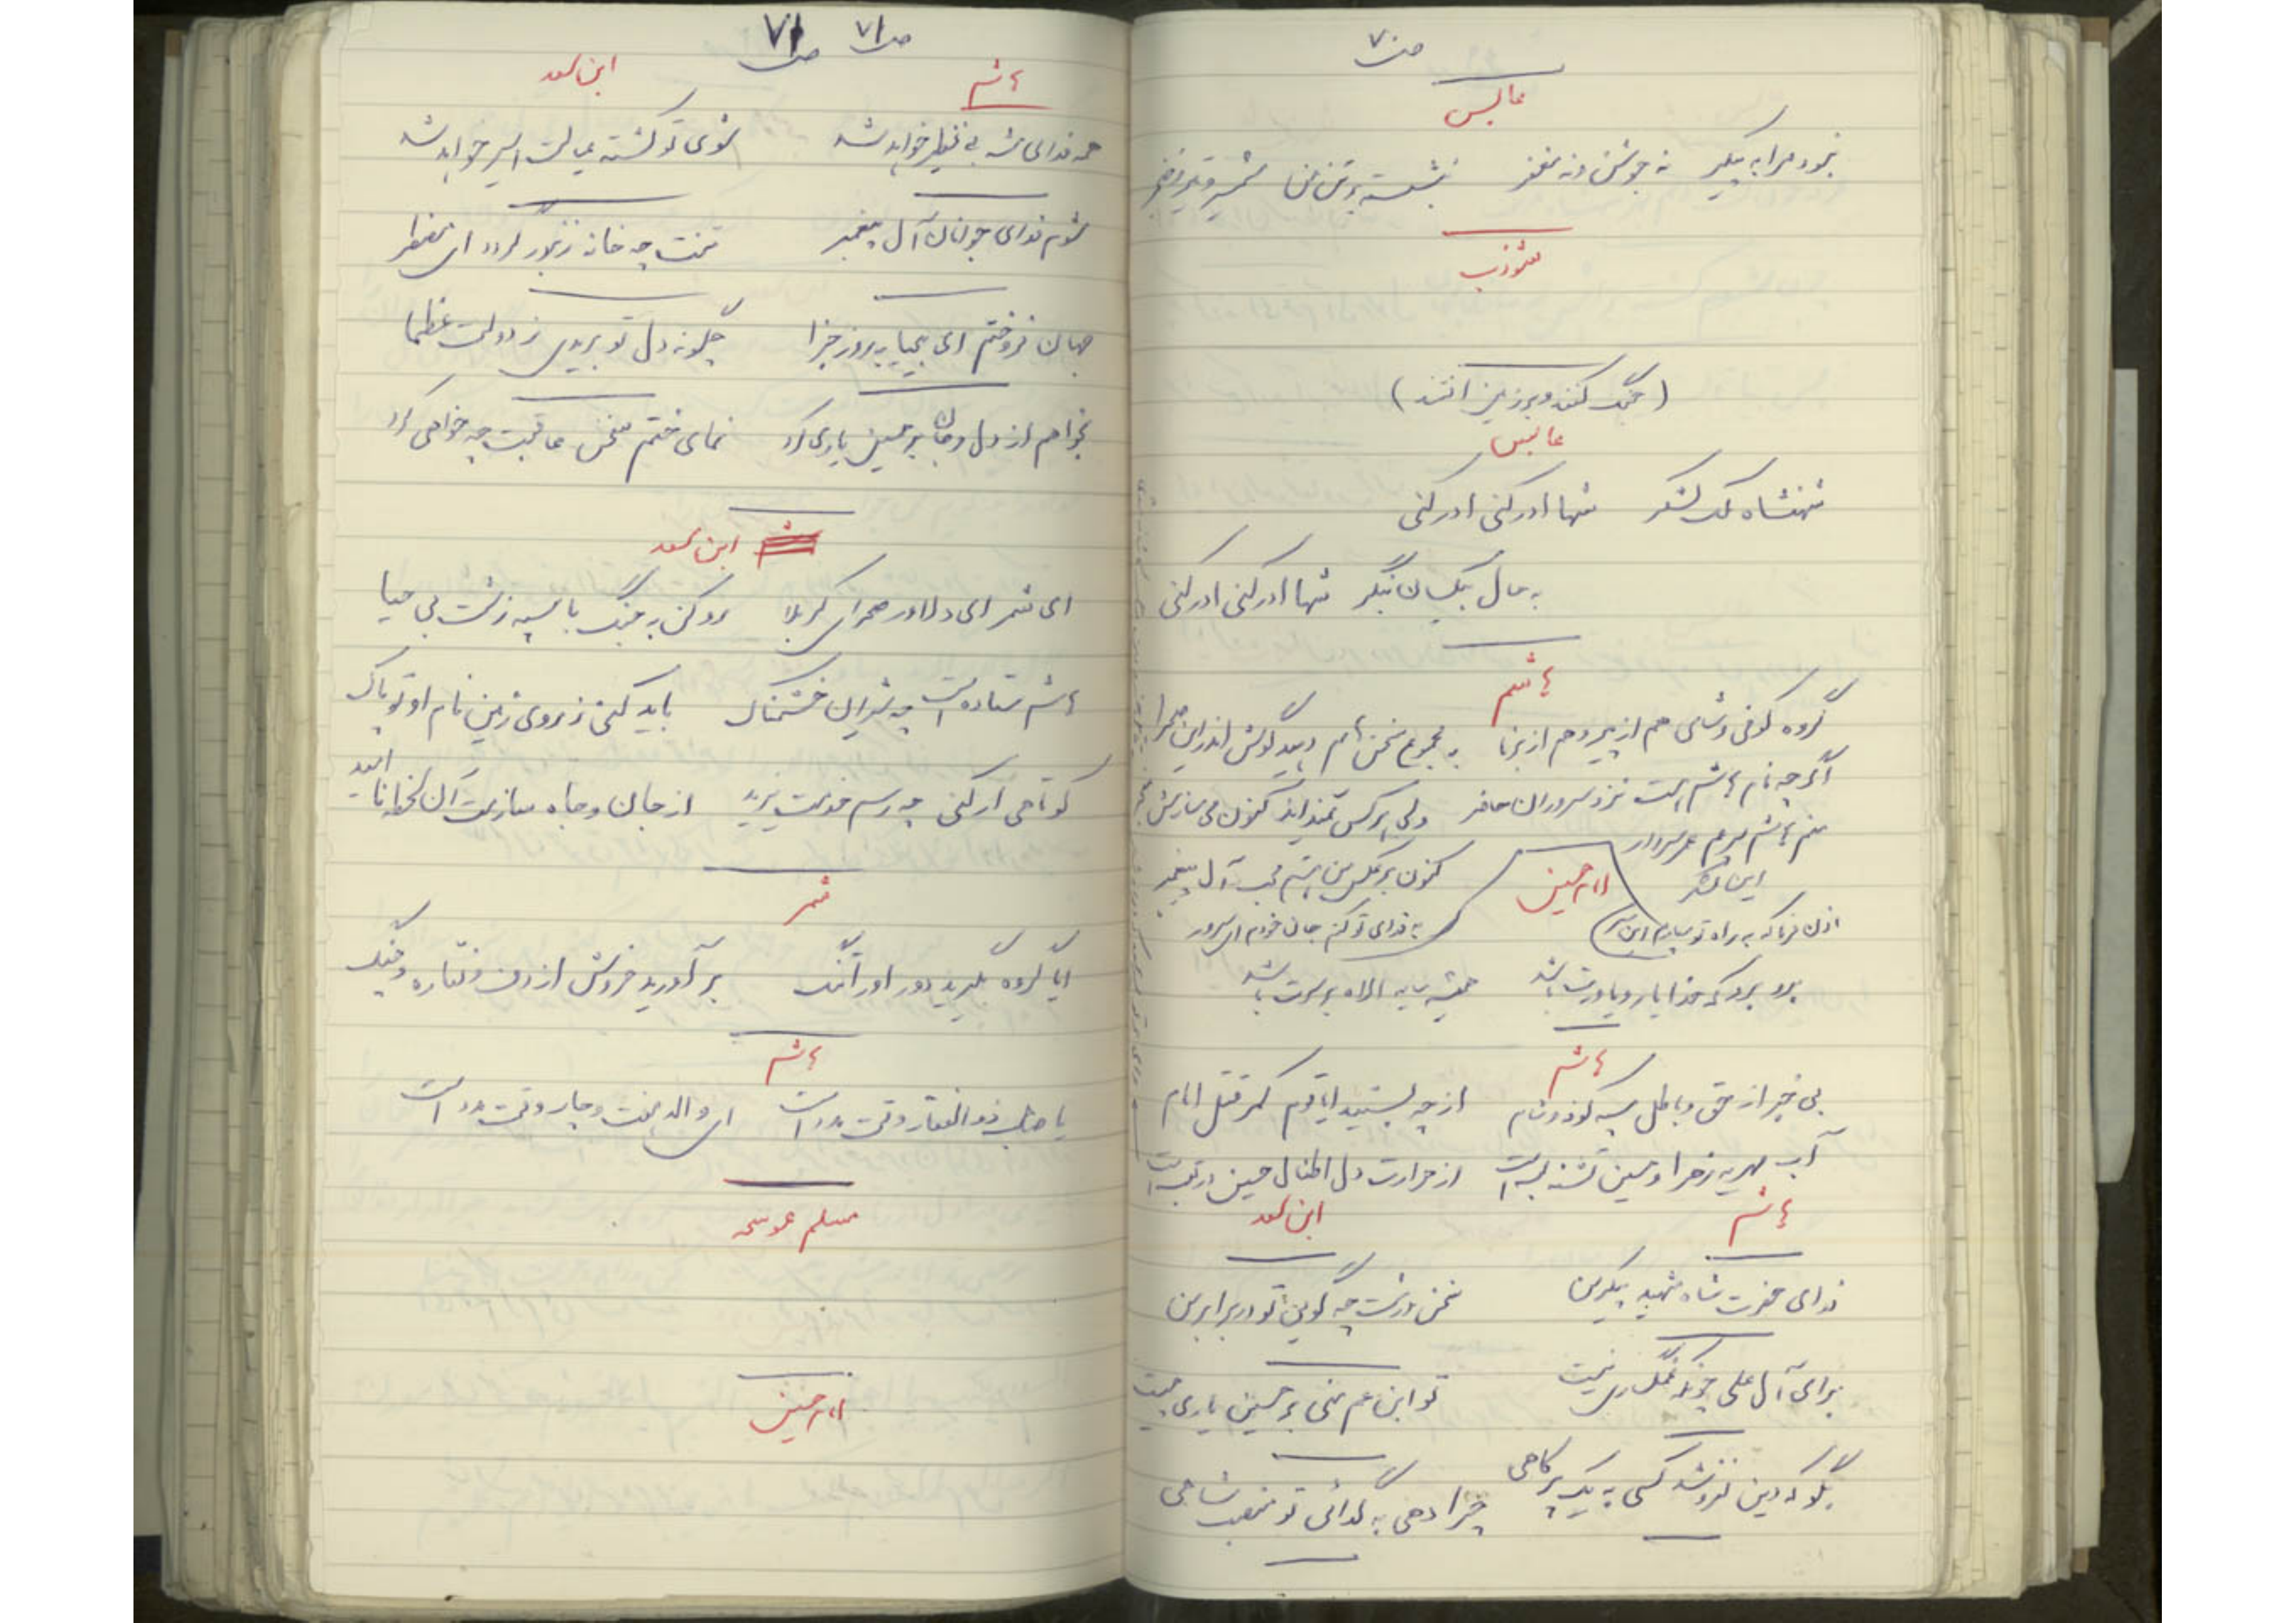 ص۷۰
عابس
نبود مرا به پیکر نه جوشن و نه مغفر نشسته بر تن من شمشیر و تیر و خنجر
شوذب
(جنگ کنند و بر زمین افتند)
عابس
شهنشاه ملک لشکر شها ادرکنی ادرکنی
به حال بیکسان بنگر شها ادرکنی ادرکنی
هاشم
گروه کوفی و شامی هم از پیر و هم از برنا به مجموع سخنهایم دهید گوش اندر این صحرا
اگرچه نام هاشم است نزد سروران حاضر ولی هر کس نمیداند کنون می سازمش
منم هاشم پسرعم عمر سردار
این لشکر
امام حسین
کنون بر عکس من باشم محب آل پیغمبر
اذن فرما که به راه تو سپارم این سر به فدای تو کنم جان خودم ای سرور
برو برو که خدا یار و یاورت باشد همیشه سایه الله بر سرت باشد
هاشم
بی خبر از حق و باطل سپه کوفه و شام از چه بستید ایا قوم کمر قتل امام
آب مهریه زهرا و حسین تشنه لب است از حرارت دل اطفال حسین در تب است
هاشم ابن سعد
فدای حضرت شاه شهید پیکر من سخن درست چه گویی تو در برابر من
برای آل علی چونکه غمگساری نیست تو ابن عم منی بر حسین یاری چیست
بگو که دین نفروشد کسی به یک پر کاهی چرا دهی به گدائی تو منصب شاهی
ص۷۱ ص۷۱
هاشم ابن سعد
همه فدای شه بی نظیر خواهد شد شوی تو کشته عیالت اسیر خواهد شد
شوم فدای جوانان آل پیغمبر تنت چه خانه زنبور گردد ای مضطر
جهان فروختم ای بیحیا به روز جزا چگونه دل تو بریدی ز دولت عظما
بخواهم از دل و جان بر حسین یاری کرد نمای ختم سخن عاقبت چه خواهی کرد
ابن سعد
ای شمر ای دلاور صحرای کربلا رو کن به جنگ با سپه زشت بی حیا
هاشم ستاده است چه شیران خشمناک باید کنی ز روی زمین نام او تو پاک
کوتاهی ار کنی چه رسم خدمت یزید از جان و جاه سازمت آن لحظه ناامید
شمر
ایا گروه بگیرید دور او را تنگ بر آورید خروش از دف و نقاره و چنگ
هاشم
یا صاحب ذوالفقار وقت مدد است ای والد هفت و چار وقت مدد است
مسلم عوسجه
امام حسین